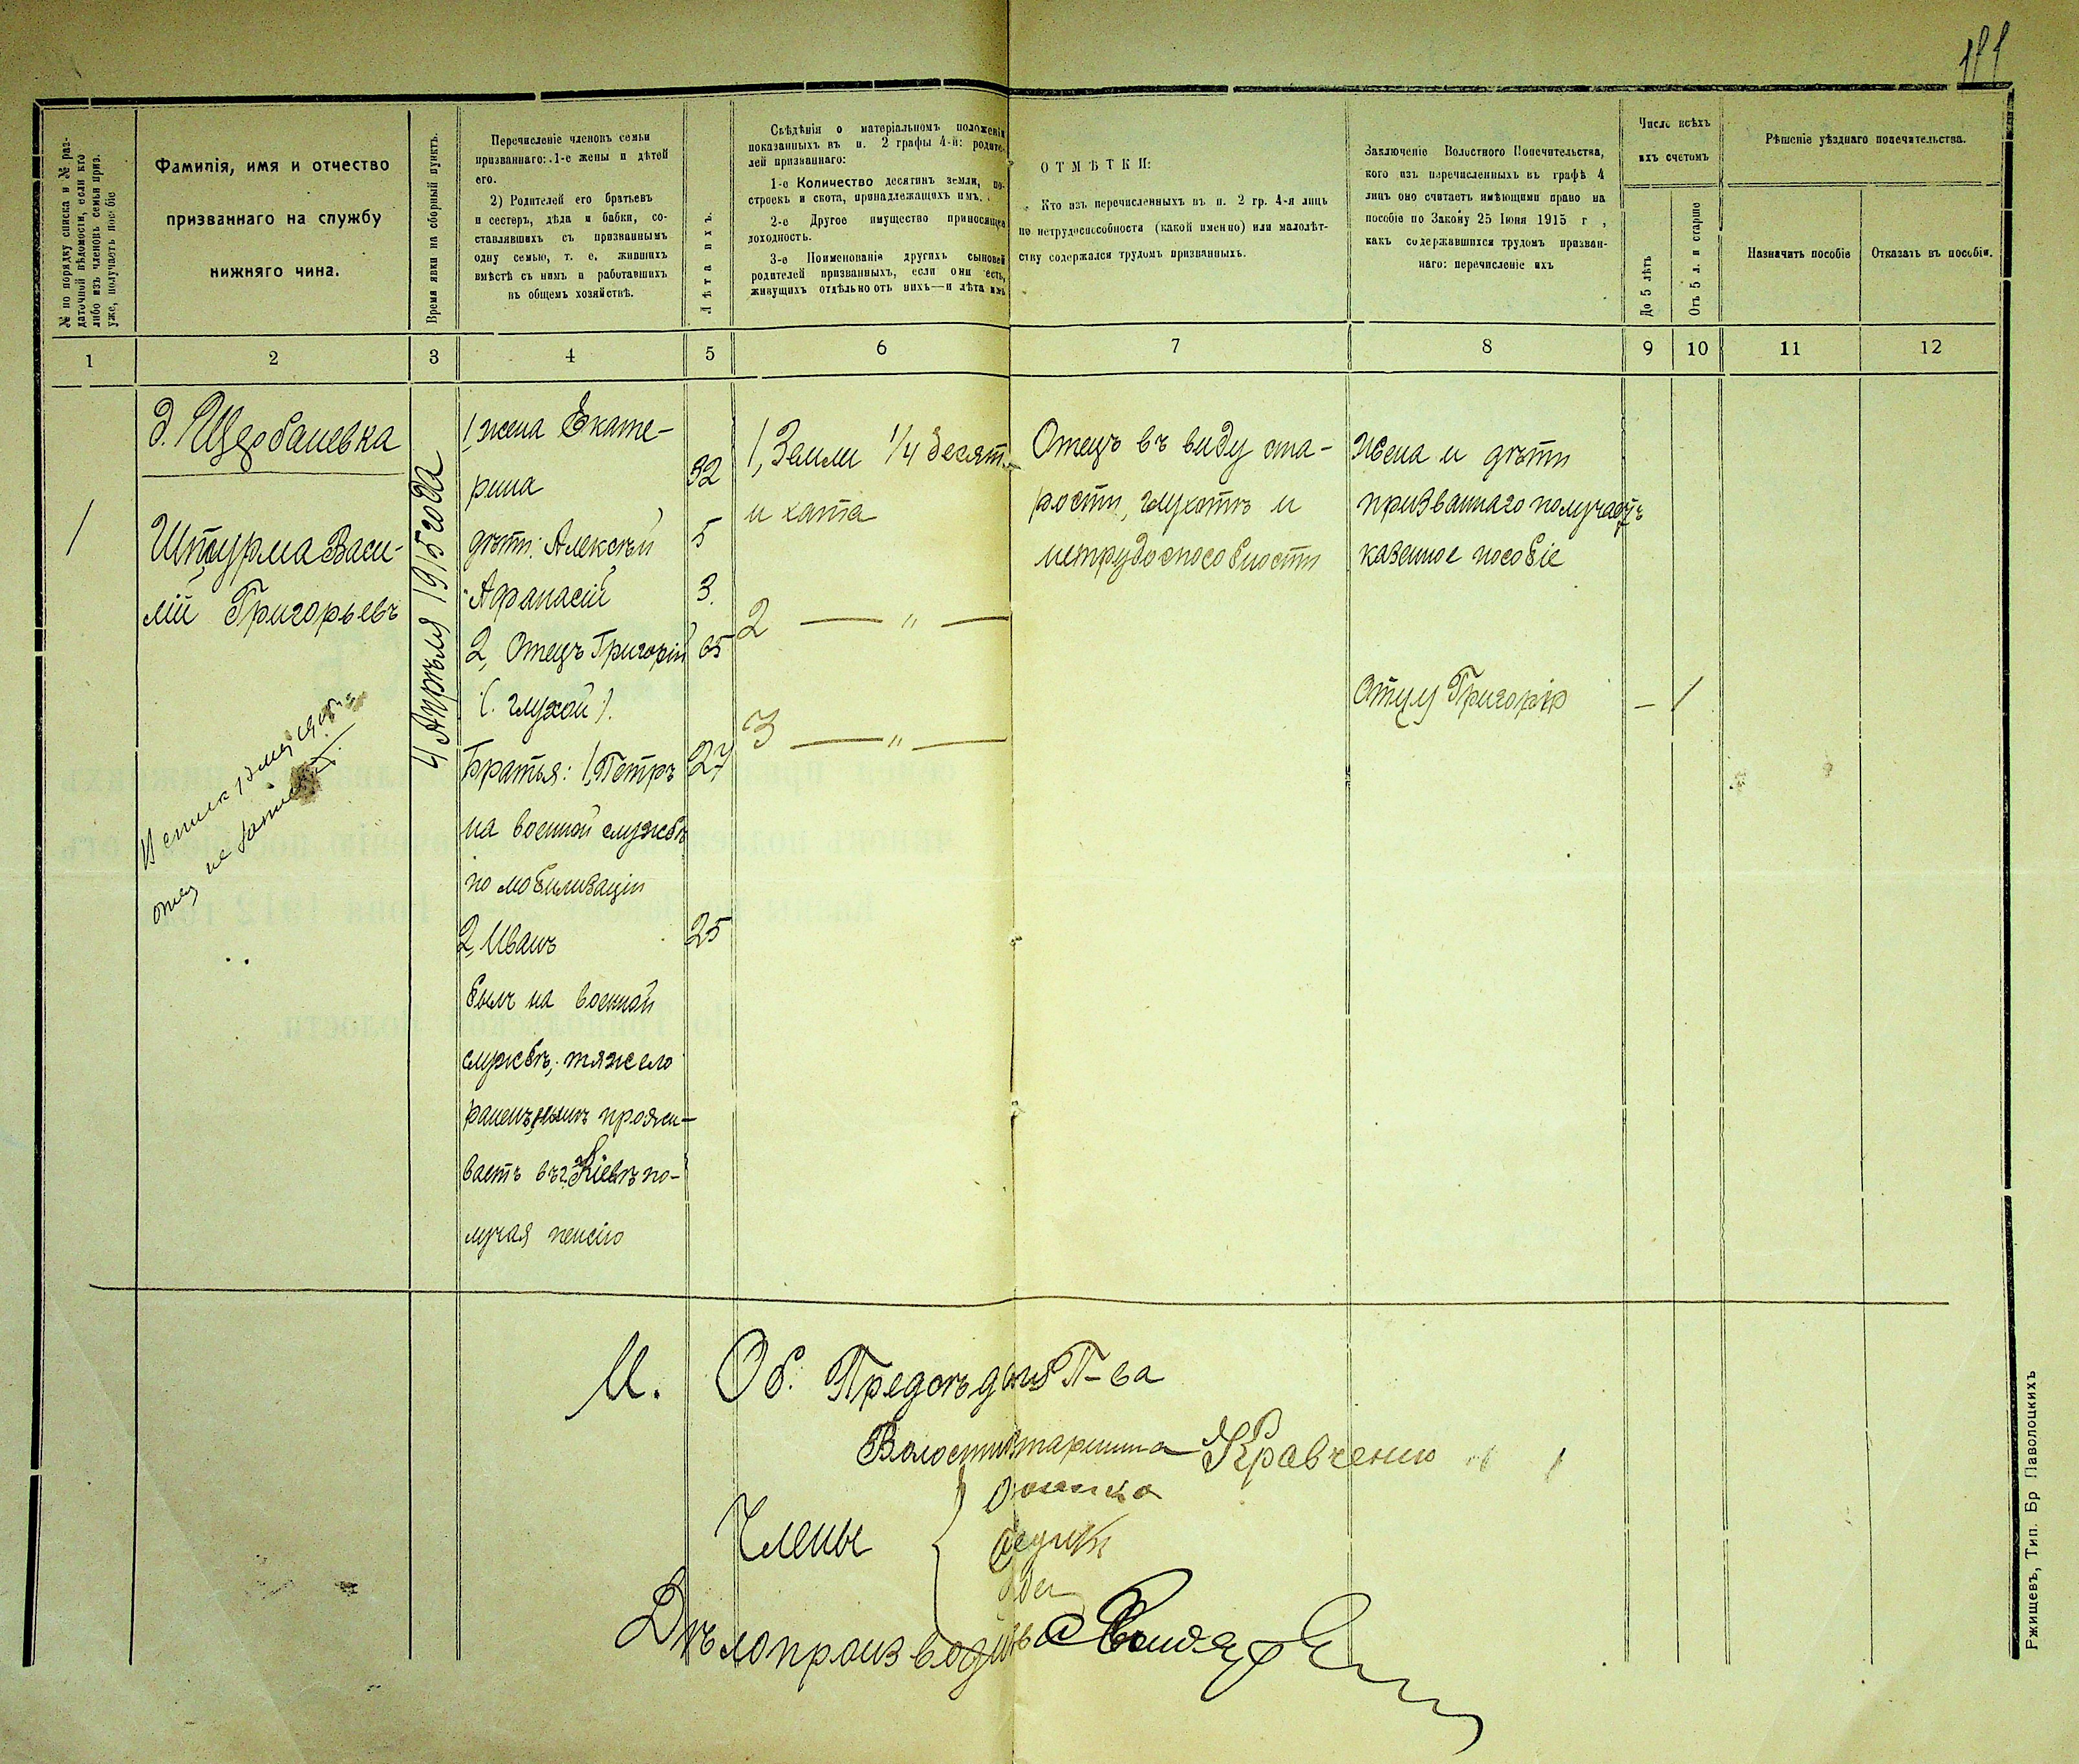 № по порядку списка и № раз-
даточной вѣдомости, если кто
либо изъ членовъ семьи приз.
уже, получаетъ пособіе
Фамилія, имя и отчество
призваннаго на службу
нижняго чина.
Время явки на сборный пунктъ.
Перечисленіе членовъ семьи
призваннаго: 1-е жены и дѣтей
его.
2) Родителей его братьевъ
и сестеръ, дѣда и бабки, со-
ставлявшихъ съ призваннымъ
одну семью, т. е. жившихъ
вмѣстѣ съ нимъ и работавшихъ
въ общемъ хозяйствѣ.
Лѣта ихъ.
Свѣдѣнія о матеріальномъ положеніи
показанныхъ въ п. 2 графы 4-й: родите-
лей призваннаго:
1-е Количество десятинъ земли, по-
строекъ и скота, принадлежащихъ имъ.
2-е Другое имущество приносящее
доходность.
3-е Поименованіе другихъ сыновей
родителей призванныхъ, если они есть,
живущихъ отдѣльно отъ нихъ—и лѣта ихъ
ОТМѢТКИ:
Кто изъ перечисленныхъ въ п. 2 гр. 4-я лицъ
по нетрудоспособности (какой именно) или малолѣт-
ству содержался трудомъ призванныхъ.
Заключеніе Волостного Попечительства,
кого изъ перечисленныхъ въ графѣ 4
лицъ оно считаетъ имѣющими право на
пособіе по Закону 25 Іюня 1915 г ,
какъ содержавшихся трудомъ призван-
наго: перечисленіе ихъ
Число всѣхъ
ихъ счетомъ
До 5 лѣтъ
Отъ 5 л. и старше
Рѣшеніе уѣзднаго попечительства.
Назначить пособіе
Отказать въ пособіи.
1 2 3 4 5 6 7 8 9 10 11 12
д. Щербаневка
1
Штурма Васи-
лій Григорьевъ
4 Апрѣля 1915 года
1, жена Екате-
рина 32
дѣти: Алексѣй 5
Афанасій 3.
2, Отецъ Григорій 65
(глухой).
Братья: 1, Петръ 27
на военной службѣ
по мобилизаціи
2, Иванъ 25
былъ на военной
службѣ, тяжело
раненъ, нынѣ прожи-
ваетъ въ г. Кіевѣ по-
лучая пенсію
1, Земли 1/4 десят.
и хата
2 — „ —
3 — „ —
Отецъ въ виду ста-
рости, глухотѣ и
нетрудоспособности
Жена и дѣти
призваннаго получаютъ
казенное пособіе
Отцу Григорію — 1
И. Об. Предсѣдателя П-ва
Волостной старшина Кравченко
Члены
Дѣлопроизводитель
Ржищевъ, Тип. Бр Паволоцкихъ